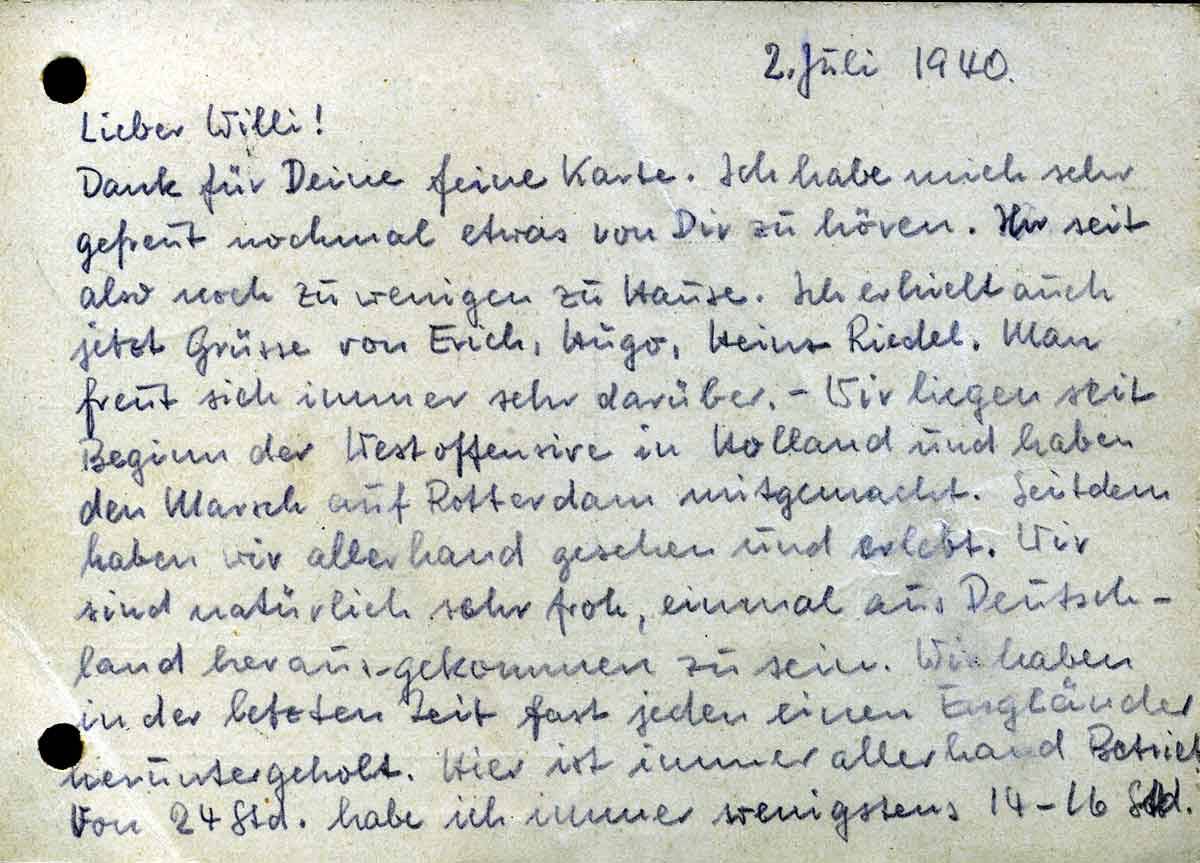 2. Juli 1940.
Lieber Willi!
Dank für Deine feine Karte. Ich habe mich sehr
gefreut nochmal etwas von Dir zu hören. Ihr seit
also noch zu wenigen zu Hause. Ich erhielt auch
jetzt Grüsse von Erich, Hugo, Heinz Riedel. Man
freut sich immer sehr darüber. - Wir liegen seit
Beginn der Westoffensive in Holland und haben
den Marsch auf Rotterdam mitgemacht. Seitdem
haben wir allerhand gesehen und erlebt. Wir
sind natürlich sehr froh, einmal aus Deutsch-
land herausgekommen zu sein. Wir haben
in der letzten Zeit fast jeden einen Engländer
heruntergeholt. Hier ist immer allerhand Betrieb
Von 24 Std. habe ich immer wenigstens 14-16 Std.